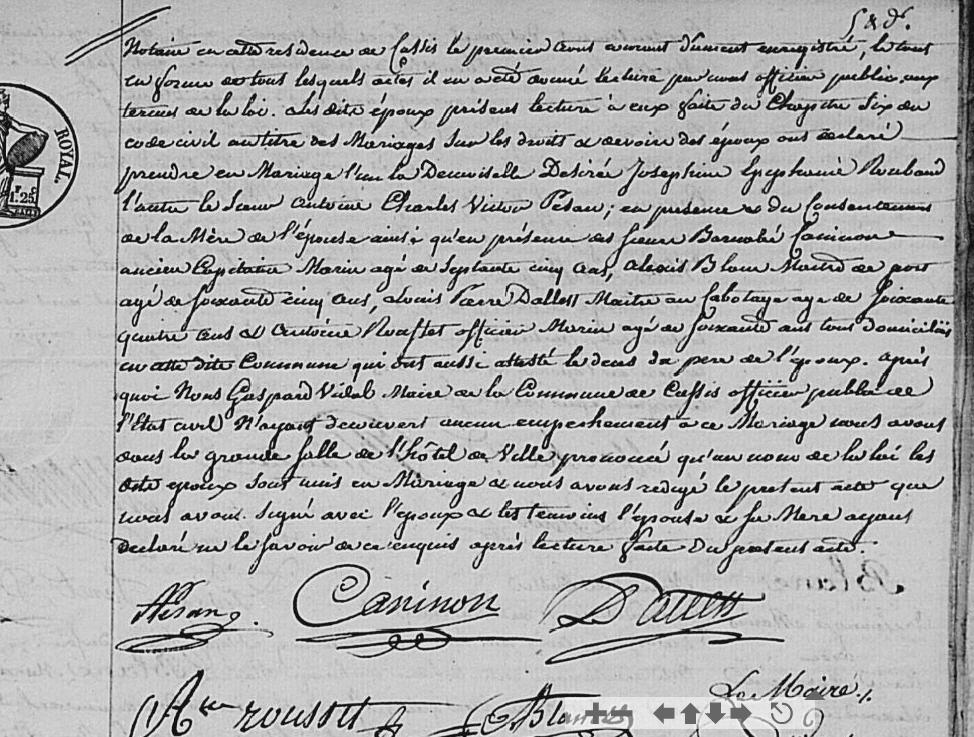 Notaire en cette residence de Cassis le premier avril courant dument enregistré, le tout
en forme de tous lesquels actes il en a été donné lecture par nous officier public aux
termes de la loi. Les dits époux présens lecture à eux faite du Chapitre Six du
code civil au titre des Mariages Sur les droits & devoirs des époux ont déclaré
prendre en Mariage l'un la Demoiselle Désirée Josephine Roubaud
l'autre le Sieur Antoine Charles Victor ; en présence & du Consentement
de la Mère de l'épouse ainsi qu'en présence des Sieurs Barnabé Caninon
ancien Capitaine Marin agé de Septante cinq ans, Alexis Blanc Maitre de port
agé de soixante cinq ans, Louis Pierre Dallest Maitre au Cabotage agé de Soixante
quatre ans & Antoine officier Marin agé de soixante ans tous domiciliés
en cette dite Commune qui ont aussi attesté le deces du pere de l'époux. Après
quoi Nous Gaspard Vidal Maire de la Commune de Cassis officier public de
l'Etat civil N'ayant découvert aucun empechement à ce Mariage nous avons
dans la grande salle de l'hôtel de Ville prononcé qu'au nom de la loi les
dits époux sont unis en Mariage & nous avons redigé le present acte que
nous avons signé avec l'époux & les temoins l'épouse & sa Mere ayant
declaré ne le savoir de ce enquis après lecture faite du présent acte.
Caninon Dallest
Le Maire,
rousset Blanc
ROYAL.
1.25